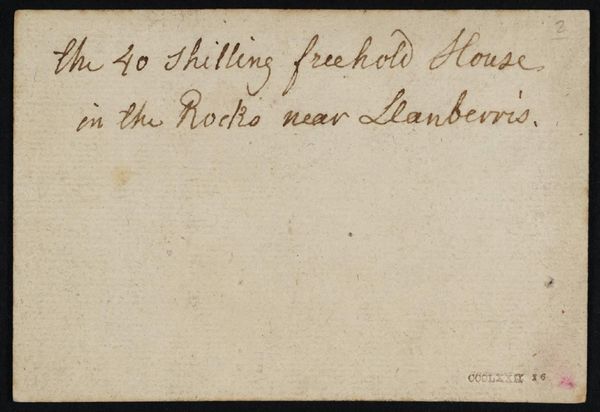 2
the 40 shilling freehold House
in the Rocks near Llanberris.
16